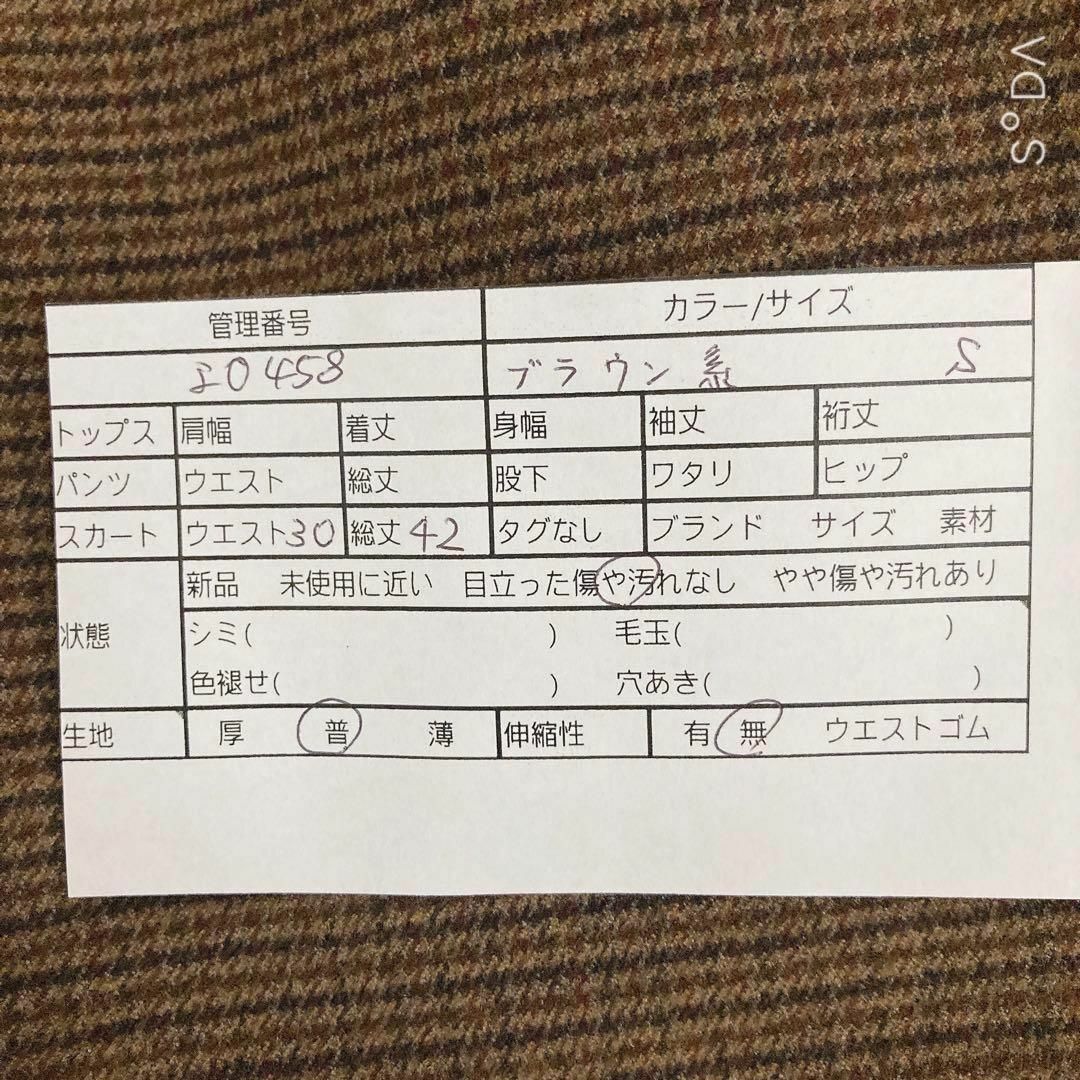 SoDA
管理番号 カラー/サイズ
I0458 ブラウン系 S
トップス 肩幅 着丈 身幅 袖丈 裄丈
パンツ ウエスト 総丈 股下 ワタリ ヒップ
スカート ウエスト30 総丈42 タグなし ブランド サイズ 素材
状態 新品 未使用に近い 目立った傷や汚れなし やや傷や汚れあり
シミ( ) 毛玉( )
色褪せ( ) 穴あき( )
生地 厚 普 薄 伸縮性 有 無 ウエストゴム